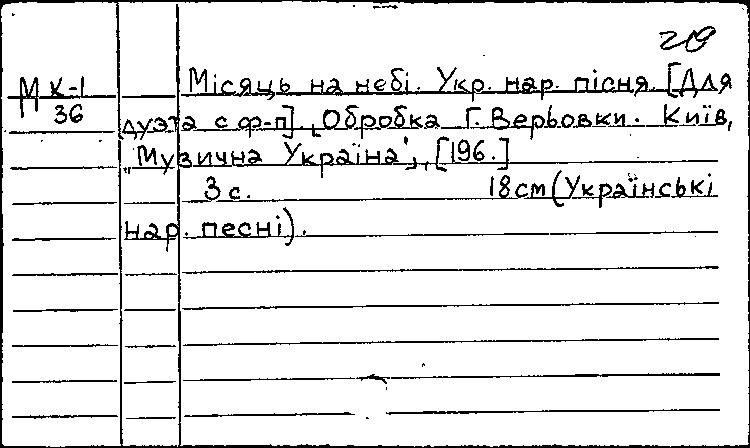 219
М К-1
36
Місяць на небі. Укр. нар. пісня. [Для
дуэта с ф-п]. Обробка Г. Верьовки. Київ,
"Музична Україна", [196.]
3 с. 18см (Українські
нар. песні).